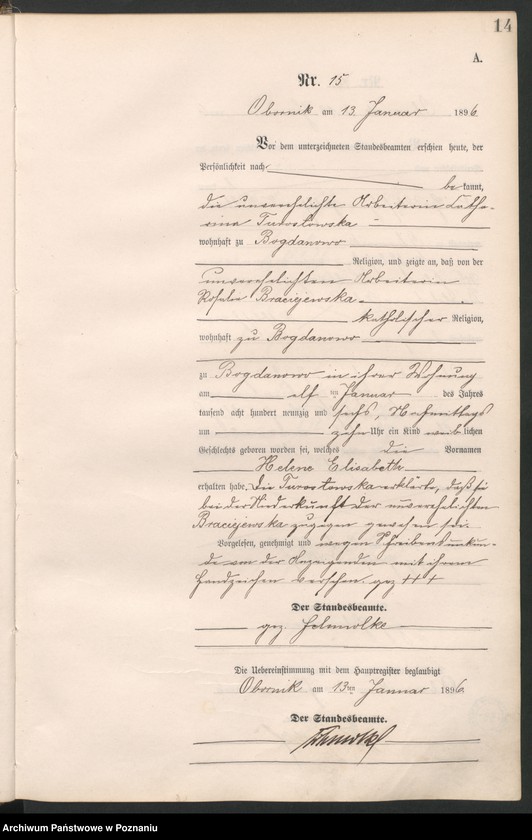 14
A.
Nr. 15
Obornik am 13 Januar 1896
Vor dem unterzeichneten Standesbeamten erschien heute, der
Persönlichkeit nach
be kannt,
die unverehelichte Arbeiterin Catha-
rina Turostowska
wohnhaft zu Bogdanowo
Religion, und zeigte an, daß von der
unverehelichten Arbeiterin
Rosalie Braciejewska
katholischer Religion,
wohnhaft zu Bogdanowo
zu Bogdanowo in ihrer Wohnung
am elf ten Januar des Jahres
tausend acht hundert neunzig und sechs, Nachmittags
um zehn Uhr ein Kind weib lichen
Geschlechts geboren worden sei, welches die Vornamen
Helene Elisabeth
erhalten habe. Die Turostowska erklärte, daß sie
bei der Niederkunft der unverehelichten
Braciejewska zugegen gewesen sei.
Vorgelesen, genehmigt und wegen Schreibensunkun-
de von der Anzeigenden mit ihrem
Handzeichen versehen. gez +++
Der Standesbeamte.
gez.
Die Uebereinstimmung mit dem Hauptregister beglaubigt
Obornik am 13ten Januar 1896.
Der Standesbeamte.
Archiwum Państwowe w Poznaniu